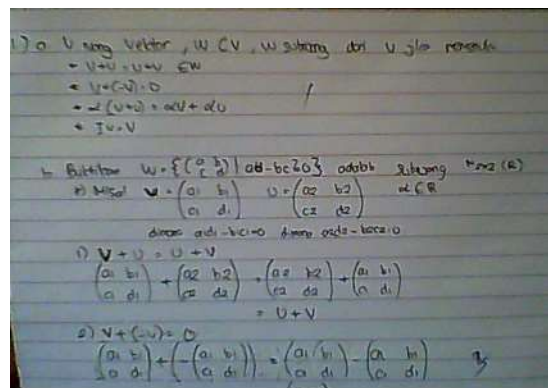 1) a. V ruang vektor, W ⊂ V, W subruang dari V jika memenuhi
• V+U = U+V ∈ W
• V+(-V) = 0
• α(V+U) = αV + αU
• IV = V
b. Buktikan W = {(a b / c d) | ad-bc=0} adalah subruang M2x2 (R)
Misal V = (a1 b1 / c1 d1) U = (a2 b2 / c2 d2) α ∈ R
dimana a1d1-b1c1=0 dimana a2d2-b2c2=0
1) V + U = U + V
(a1 b1 / c1 d1) + (a2 b2 / c2 d2) = (a2 b2 / c2 d2) + (a1 b1 / c1 d1)
= U + V
2) V + (-V) = 0
(a1 b1 / c1 d1) + (-(a1 b1 / c1 d1)) = (a1 b1 / c1 d1) - (a1 b1 / c1 d1)